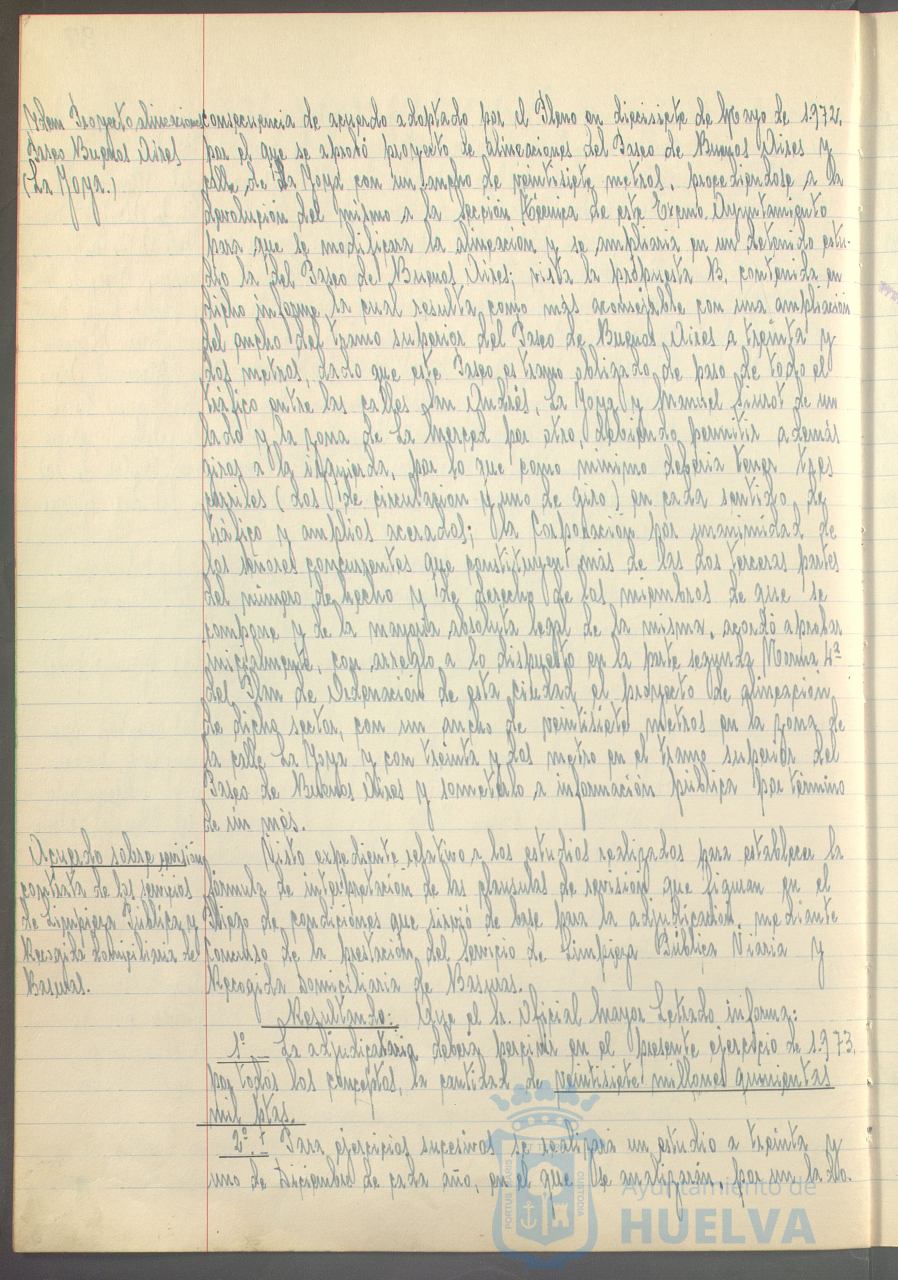 Idem Proyecto alineaciones
Paseo Buenos Aires
(La Joya.)
consecuencia de acuerdo adoptado por el Pleno en diecisiete de Marzo de 1.972,
por el que se aprobó proyecto de alineaciones del Paseo de Buenos Aires y
calle de La Joya con un ancho de veintisiete metros, procediendose a la
devolución del mismo a la Sección Técnica de este Excmo. Ayuntamiento
para que se modificara la alineación y se ampliaria en un detenido estu-
dio la del Paseo de Buenos Aires; vista la propuesta B. contenida en
dicho informe, la cual resulta como más aconsejable con una ampliación
del ancho del tramo superior del Paseo de Buenos Aires a treinta y
dos metros, dado que este Paseo es tramo obligado de paso de todo el
tráfico entre las calles San Andrés, La Joya y Manuel Siurot de un
lado y la zona de La Merced por otro, debiendo permitir además
giros a la izquierda, por lo que como minimo deberia tener tres
carriles (dos de circulacion y uno de giro) en cada sentido de
tráfico y amplios acerados; la Corporación por unanimidad de
los señores concurrentes que constituyen más de las dos terceras partes
del número de hecho y de derecho de los miembros de que se
compone y de la mayoría absoluta legal de la misma, acordó aprobar
inicialmente, con arreglo a lo dispuesto en la parte segunda Norma 4ª
del Plan de Ordenación de esta ciudad el proyecto de alineación
de dicho sector, con un ancho de veintisiete metros en la zona de
la calle La Joya y con treinta y dos metro en el tramo superior del
Paseo de Buenos Aires y someterlo a información pública por término
de un mes.
Acuerdo sobre revisión
contrata de los servicios
de Limpieza Pública y
Recogida domiciliaria de
Basuras.
Visto expediente relativo a los estudios realizados para establecer la
fórmula de interpretación de las clausulas de revisión que figuran en el
Pliego de condiciones que sirvió de base para la adjudicación mediante
Concurso de la prestación del Servicio de Limpieza Pública Viaria y
Recogida Domiciliaria de Basuras.
Resultando: Que el Sr. Oficial Mayor Letrado informa:
1º.- La adjudicataria deberá percibir en el presente ejercicio de 1.973,
por todos los conceptos, la cantidad de veintisiete millones quinientas
mil ptas.
2º.- Para ejercicios sucesivos se realizará un estudio a treinta y
uno de Diciembre de cada año, en el que se analizarán, por un lado.
PORTUS MARIS
CUSTODIA
Ayuntamiento de
HUELVA